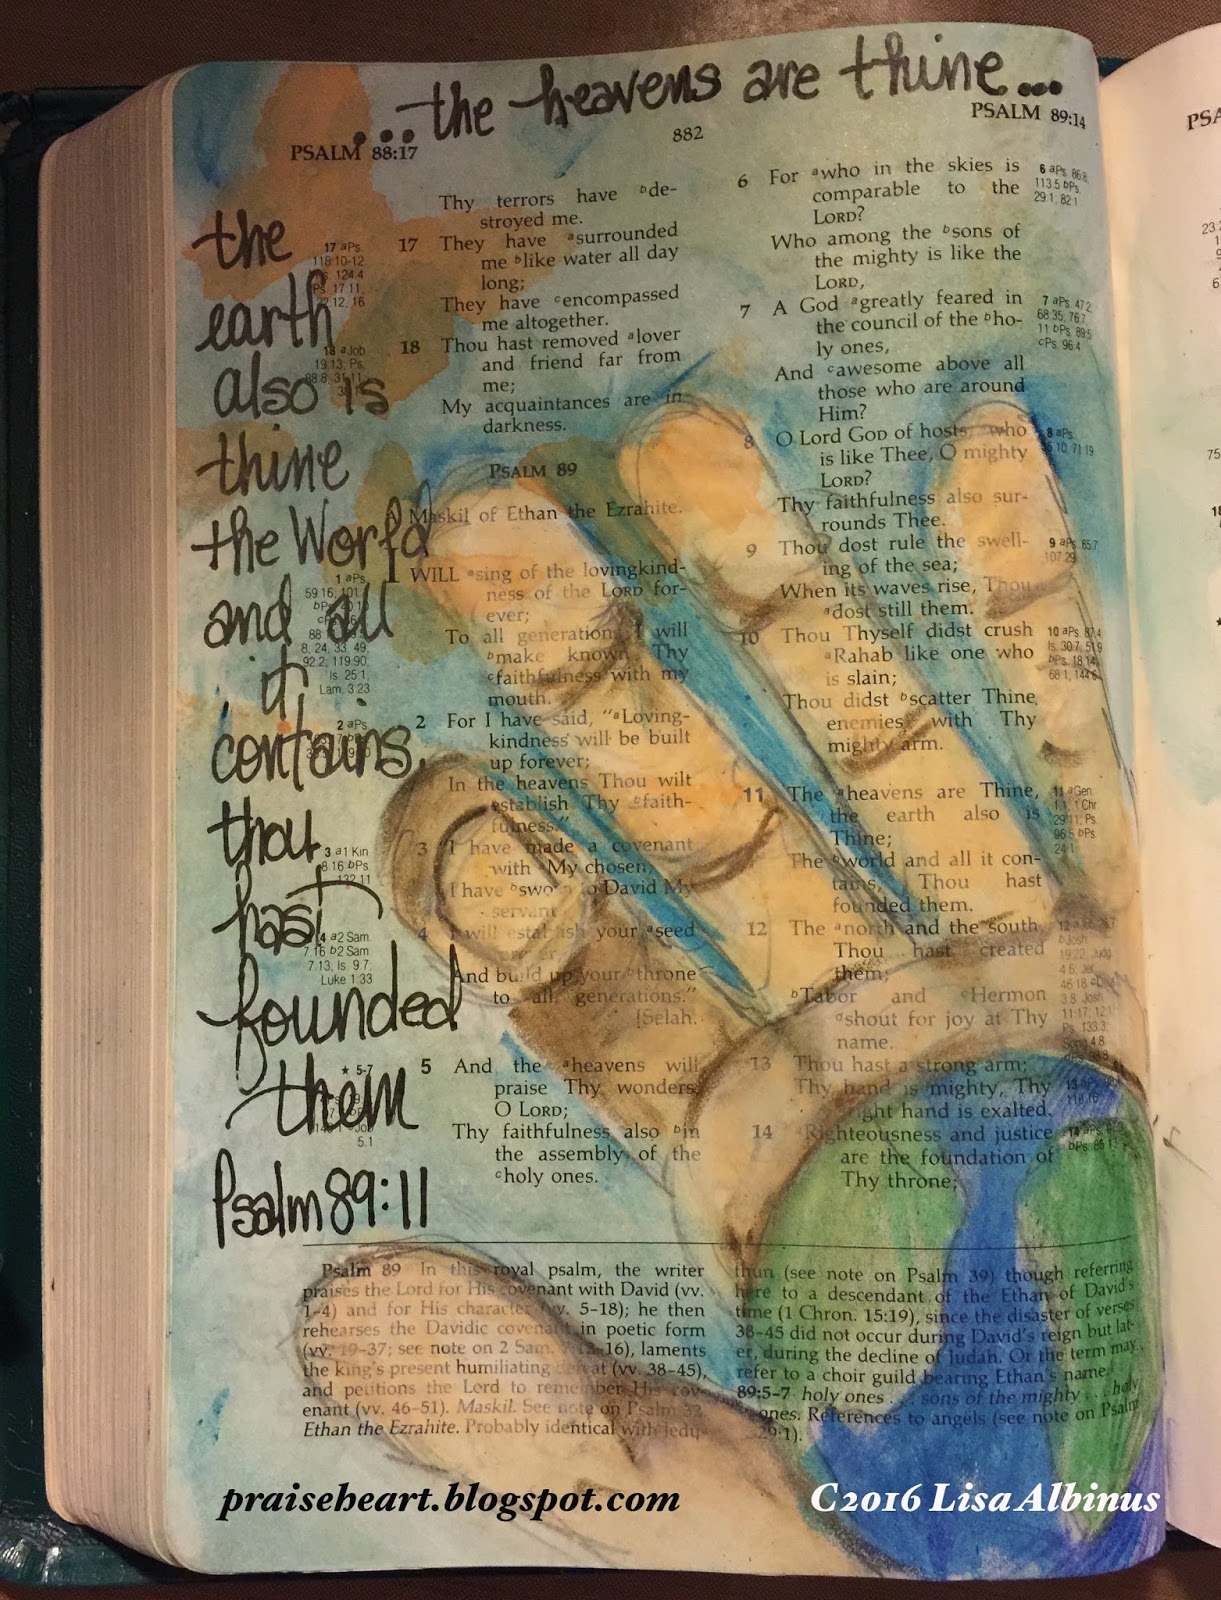 ...the heavens are thine...
PSALM 88:17
882
PSALM 89:14
the
earth
also is
thine
the World
and all
it
contains.
thou
hast
founded
them
Psalm 89:11
17 aPs.
118:10-12
124:4
17:11
22:12, 16
18 aJob
19:13; Ps.
88:8; 31:11
1 aPs.
59:16; 101:1
88
8, 24, 33, 49;
92:2; 119:90;
Is. 25:1;
Lam. 3:23
2 aPs.
3 a1 Kin
8:16 bPs.
132:11
4 a2 Sam.
7:16 b2 Sam.
7:13; Is. 9:7;
Luke 1:33
★ 5-7
5:1
Thy terrors have bde-
stroyed me.
17 They have asurrounded
me blike water all day
long;
They have cencompassed
me altogether.
18 Thou hast removed alover
and friend far from
me;
My acquaintances are in
darkness.
PSALM 89
Maskil of Ethan the Ezrahite.
I WILL asing of the lovingkind-
ness of the LORD for-
ever;
To all generations I will
bmake known Thy
cfaithfulness with my
mouth.
2 For I have said, “aLoving-
kindness will be built
up forever;
In the heavens Thou wilt
establish Thy cfaith-
fulness.”
3 I have made a covenant
with My chosen;
I have bsworn to David My
servant,
4 I will establish your aseed
And build up your bthrone
to all generations.”
[Selah.
5 And the aheavens will
praise Thy wonders,
O LORD;
Thy faithfulness also bin
the assembly of the
choly ones.
6 For awho in the skies is
comparable to the
LORD?
Who among the bsons of
the mighty is like the
LORD,
7 A God agreatly feared in
the council of the bho-
ly ones,
And cawesome above all
those who are around
Him?
8 O Lord GOD of hosts, who
is like Thee, O mighty
LORD?
Thy faithfulness also sur-
rounds Thee.
9 Thou dost rule the swell-
ing of the sea;
When its waves rise, Thou
adost still them.
10 Thou Thyself didst crush
aRahab like one who
is slain;
Thou didst bscatter Thine
enemies with Thy
mighty arm.
11 The aheavens are Thine,
the earth also is
Thine;
The bworld and all it con-
tains, Thou hast
founded them.
12 The anorth and the south,
Thou hast created
them;
bTabor and cHermon
dshout for joy at Thy
name.
13 Thou hast a strong arm;
Thy hand is mighty, Thy
right hand is exalted.
14 aRighteousness and justice
are the foundation of
Thy throne;
6 aPs. 86:8;
113:5 bPs.
29:1; 82:1
7 aPs. 47:2;
68:35; 76:7,
11 bPs. 89:5
cPs. 96:4
8 aPs.
35:10; 71:19
9 aPs. 65:7;
107:29
10 aPs. 87:4;
Is. 30:7; 51:9
bPs. 18:14;
68:1; 144:6
11 aGen.
1:1; 1 Chr.
29:11; Ps.
96:5 bPs.
24:1
Psalm 89 In this royal psalm, the writer
praises the Lord for His covenant with David (vv.
1-4) and for His character (vv. 5-18); he then
rehearses the Davidic covenant in poetic form
(vv. 19-37; see note on 2 Sam. 7:12-16), laments
the king's present humiliating defeat (vv. 38-45),
and petitions the Lord to remember His cov-
enant (vv. 46-51). Maskil. See note on Psalm 32.
Ethan the Ezrahite. Probably identical with Jedu-
thun (see note on Psalm 39) though referring
here to a descendant of the Ethan of David's
time (1 Chron. 15:19), since the disaster of verses
38-45 did not occur during David's reign but lat-
er, during the decline of Judah. Or the term may
refer to a choir guild bearing Ethan's name.
89:5-7 holy ones . . . sons of the mighty . . . holy
ones. References to angels (see note on Psalm
29:1).
praiseheart.blogspot.com
C2016 Lisa Albinus